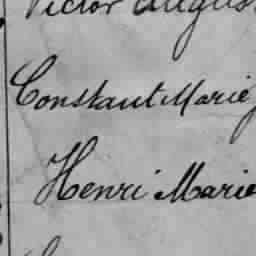 Victor August
Constant Marie
Henri Marie